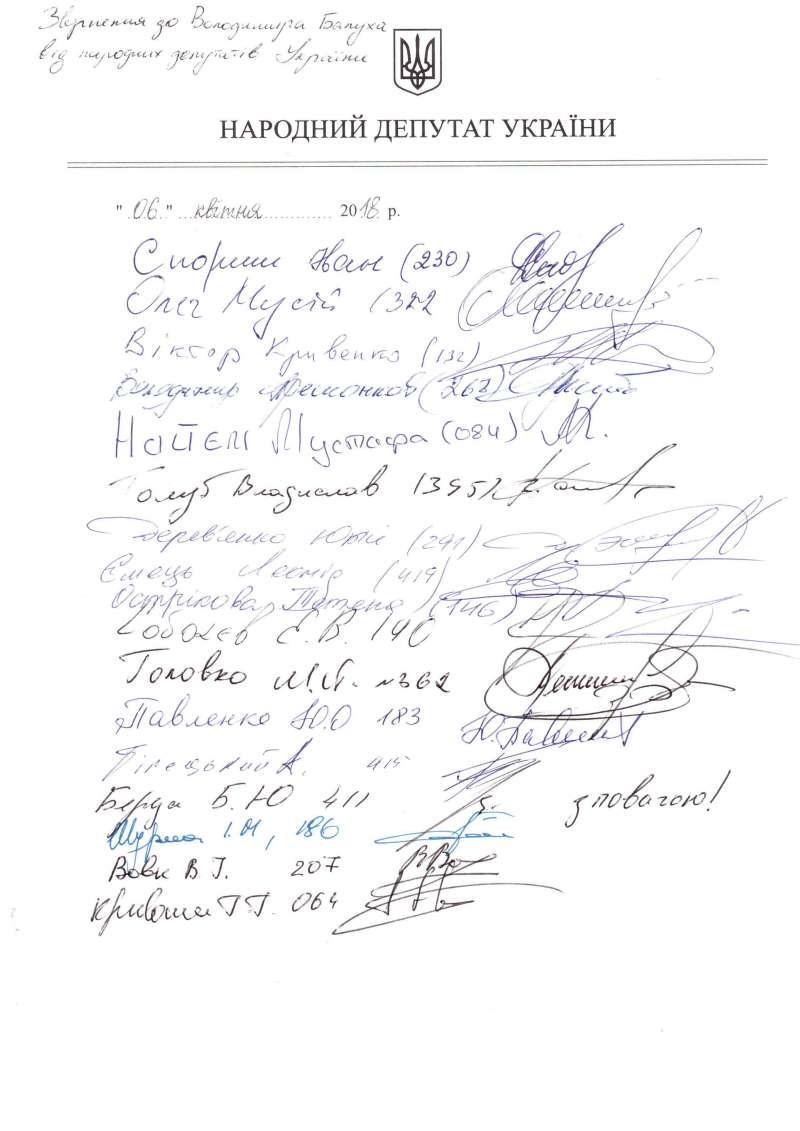 Звернення до Володимира Балуха
від народних депутатів України
НАРОДНИЙ ДЕПУТАТ УКРАЇНИ
"06" квітня 2018 р.
Спориш Іван (230)
Олег Мусій (322
Віктор Кривенко (132)
Володимир (262)
Найєм Мустафа (084)
Голуб Владислав (395)
Дерев'енко Юрій (291)
Ємець Леонід (419)
Острікова Тетяна (146)
Соболєв Є.В. 190
Головко М.Й. №362
Павленко Ю.О 183
Білецький А. 415
Берда Б.Ю 411
з повагою!
І.М, 186
Вовк В.І. 207
Т.Т. 064